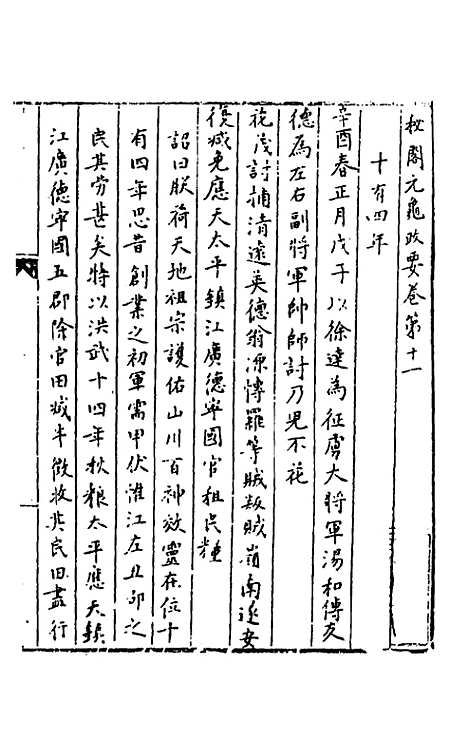 秘閣元龜政要卷第十一
十有四年
辛酉春正月戊子以徐達為征虜大將軍湯和傅友
德為左右副將軍帥師討乃児不花
花茂討捕清遠英德翁源博羅等賊叛賊嶺南遂安
復减免應天太平鎮江廣德寧國官租民糧
詔曰朕荷天地祖宗護佑山川百神效靈在位十
有四年思昔創業之初軍需甲仗淮江左五郡之
民其劳甚矣特以洪武十四年秋粮太平應天鎮
江廣德寧國五郡除官田减半徴收其民田盡行